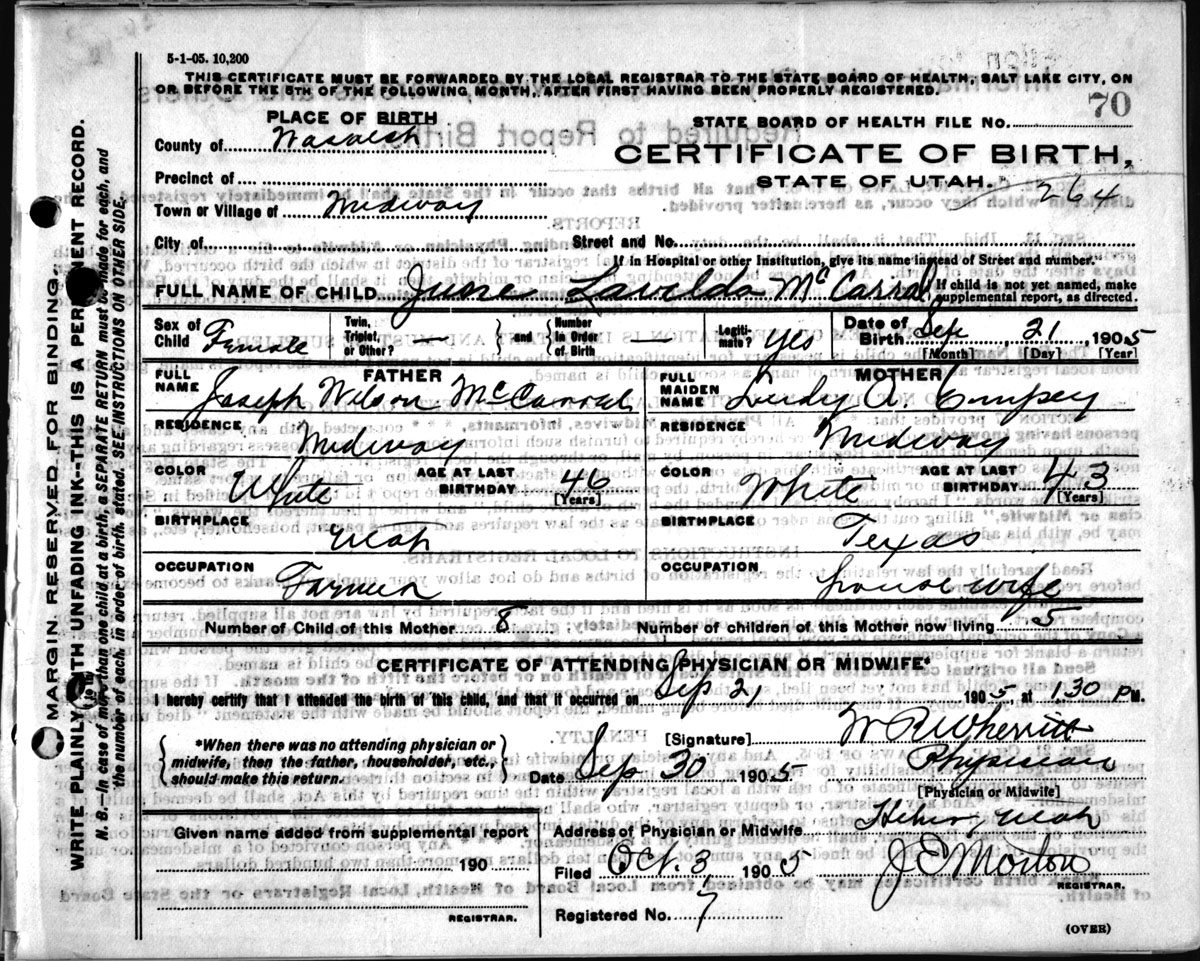 5-1-05. 10,200
THIS CERTIFICATE MUST BE FORWARDED BY THE LOCAL REGISTRAR TO THE STATE BOARD OF HEALTH, SALT LAKE CITY, ON
OR BEFORE THE 5TH OF THE FOLLOWING MONTH, AFTER FIRST HAVING BEEN PROPERLY REGISTERED.
70
PLACE OF BIRTH
STATE BOARD OF HEALTH FILE NO.
County of Wasatch
CERTIFICATE OF BIRTH,
Precinct of
STATE OF UTAH. 264
Town or Village of Midway
City of Street and No.
If in Hospital or other Institution, give its name instead of Street and number."
FULL NAME OF CHILD June Lavelda McCarral
If child is not yet named, make supplemental report, as directed.
Sex of Child Female
Twin, Triplet, or Other? — and Number in Order of Birth —
Legitimate? yes
Date of Birth Sep 21 1905
[Month] [Day] [Year]
FATHER
MOTHER
FULL NAME Joseph Wilson McCarral
FULL MAIDEN NAME A
RESIDENCE Midway
RESIDENCE Midway
COLOR White AGE AT LAST BIRTHDAY 46 [Years]
COLOR White AGE AT LAST BIRTHDAY 43 [Years]
BIRTHPLACE Utah
BIRTHPLACE Texas
OCCUPATION Farmer
OCCUPATION housewife
Number of Child of this Mother 8 Number of children of this Mother now living 5
CERTIFICATE OF ATTENDING PHYSICIAN OR MIDWIFE*
I hereby certify that I attended the birth of this child, and that it occurred on Sep 21 1905 at 1.30 PM.
*When there was no attending physician or midwife, then the father, householder, etc., should make this return.
[Signature] W R Wherritt
Date Sep 30 1905 Physician
[Physician or Midwife]
Given name added from supplemental report
190
REGISTRAR.
Address of Physician or Midwife Heber, Utah
Filed Oct. 3 1905 J E Morton
REGISTRAR.
Registered No. 7
(OVER)
MARGIN RESERVED FOR BINDING.
WRITE PLAINLY WITH UNFADING INK--THIS IS A PERMANENT RECORD.
N. B.—In case of more than one child at a birth, a SEPARATE RETURN must be made for each, and
the number of each, in order of birth, stated. SEE INSTRUCTIONS ON OTHER SIDE.